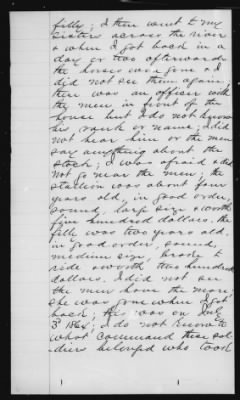 filly; I then went to my
sisters across the river
& when I got back in a
day or two afterwards
the horses were gone & I
did not see them again.
there was an officer with
the men in front of the
house but I do not know
his rank or name; I did
not hear him or the men
say anything about the
stock; I was afraid & did
not go near the men; the
stallion was about four
years old, in good order,
sound, large size & worth
five hundred dollars. the
filly was two years old.
in good order, sound,
medium size, broke to
ride & worth two hundred
dollars. I did not see
the men have the mare;
she was gone when I got
back; this was on July
3d 1864; I do not know to
what command these sol-
diers belonged who took